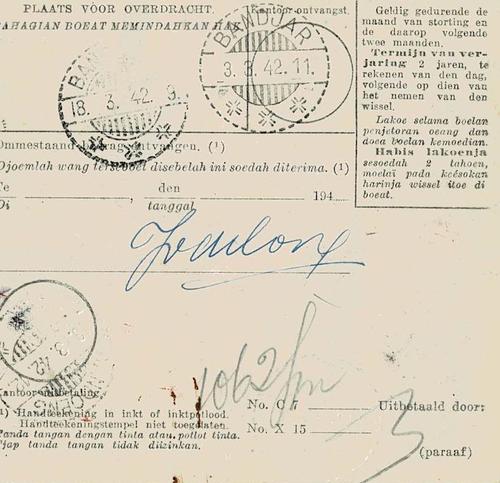 PLAATS VÓOR OVERDRACHT.
BAHAGIAN BOEAT MEMINDAHKAN HAK
Kantoor ontvangst.
BANDJAR
3. 3. 42. 11.
18. 3. 42. 9.
Geldig gedurende de
maand van storting en
de daarop volgende
twee maanden.
Termijn van ver-
jaring 2 jaren, te
rekenen van den dag,
volgende op dien van
het nemen van den
wissel.
Lakoe selama boelan
penjetoran oeang dan
doea boelan kemoedian.
Habis lakoenja
sesoedah 2 tahoen,
moelaï pada keésokan
harinja wissel itoe di
boeat.
Ommestaand bedrag ontvangen. (1)
Djoemlah wang terseboet disebelah ini soedah diterima. (1)
Te , den 194
Di tanggal
Kantoor uitbetaling
1062
1) Handteekening in inkt of inktpotlood.
Handteekeningstempel niet toegelaten.
Tanda tangan dengan tinta atau potlot tinta.
Tjap tanda tangan tidak diizinkan.
No. C 7
No. X 15
Uitbetaald door:
(paraaf)